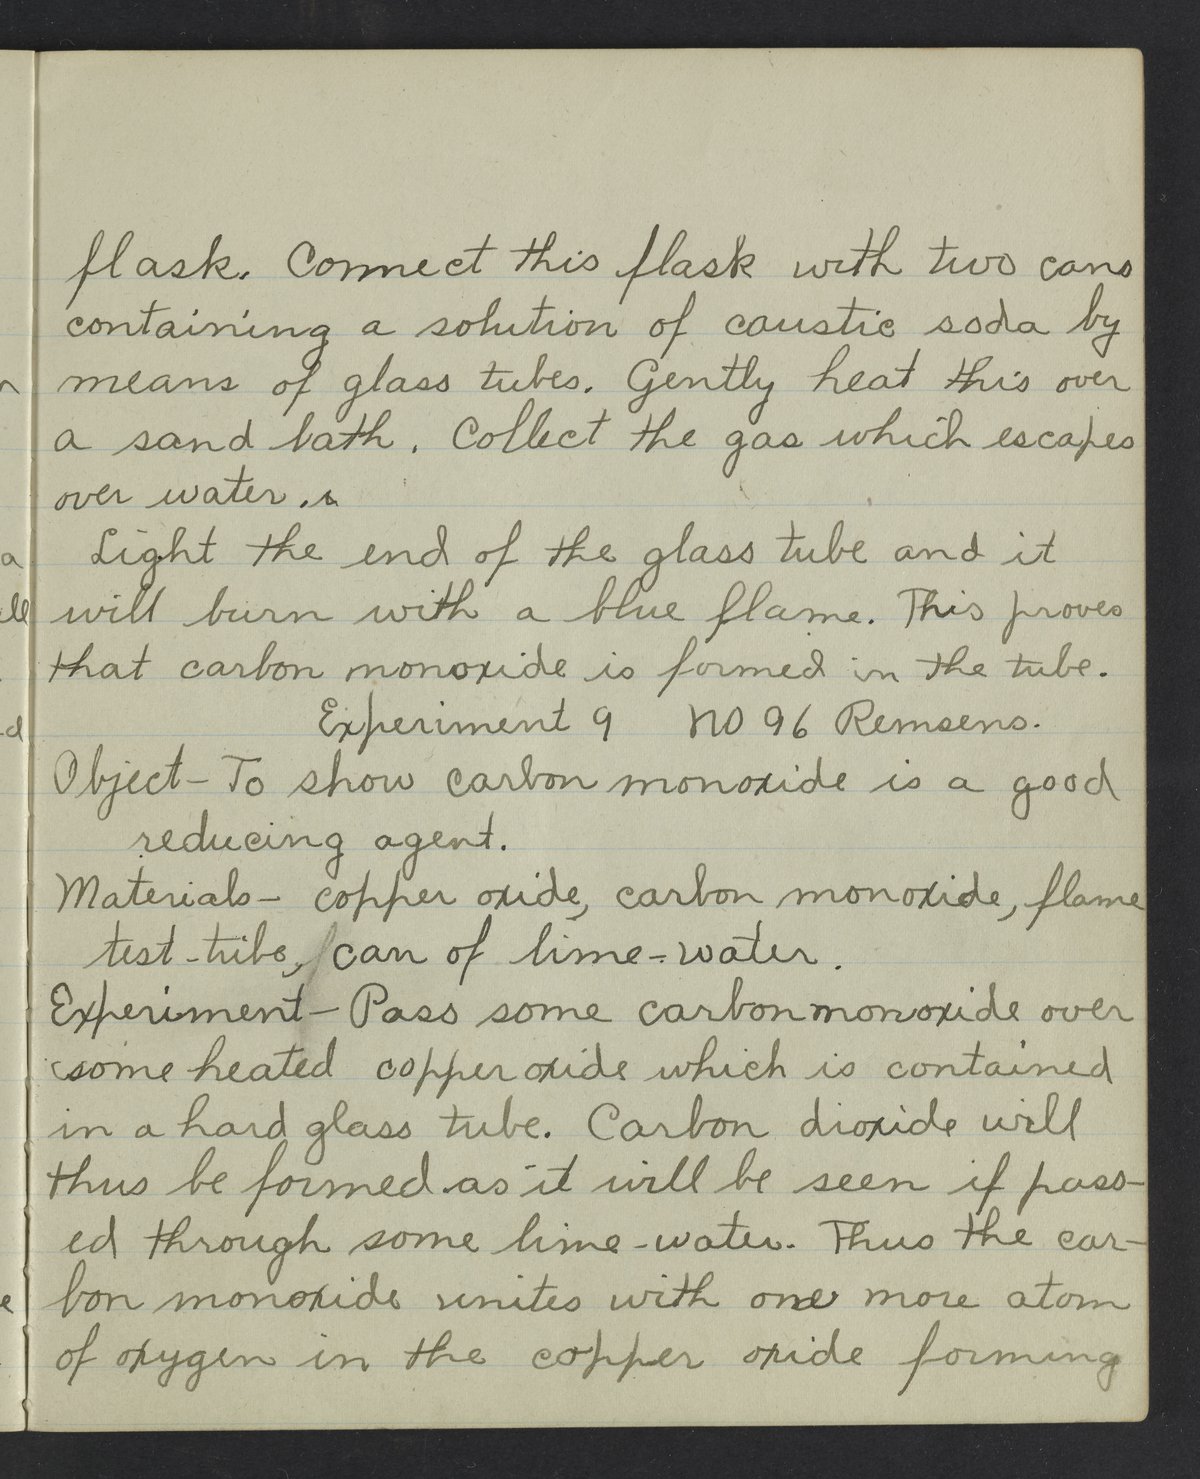 flask. Connect this flask with two cans
containing a solution of caustic soda by
means of glass tubes. Gently heat this over
a sand bath. Collect the gas which escapes
over water.
Light the end of the glass tube and it
will burn with a blue flame. This proves
that carbon monoxide is formed in the tube.
Experiment 9 No 96 Remsens.
Object- To show carbon monoxide is a good
reducing agent.
Materials- copper oxide, carbon monoxide, flame
test-tube, can of lime-water.
Experiment- Pass some carbon monoxide over
some heated copper oxide which is contained
in a hard glass tube. Carbon dioxide will
thus be formed as it will be seen if pass-
ed through some lime-water. Thus the car-
bon monoxide unites with one more atom
of oxygen in the copper oxide forming